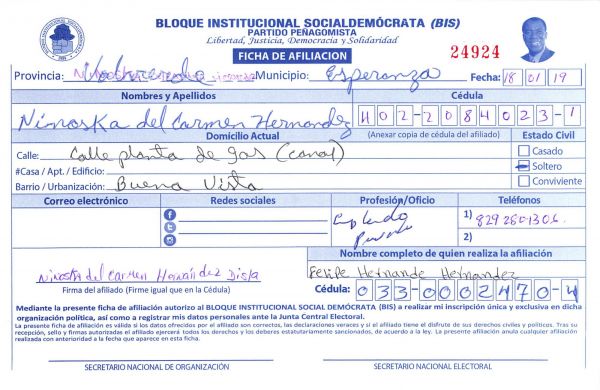 BLOQUE INSTITUCIONAL SOCIALDEMÓCRATA (BIS)
PARTIDO PEÑAGOMISTA
Libertad, Justicia, Democracia y Solidaridad
FICHA DE AFILIACION
24924
Provincia: Valverde Municipio: Esperanza Fecha: 18 01 19
Nombres y Apellidos Cédula
Ninoska del Carmen Hernandez 402-2084023-1
Domicilio Actual (Anexar copia de cédula del afiliado) Estado Civil
Calle: Calle planta de gas (canal) Casado
#Casa / Apt. / Edificio: Soltero
Barrio / Urbanización: Buena Vista Conviviente
Correo electrónico Redes sociales Profesión/Oficio Teléfonos
Empleado 1) 829 260 1306
2)
Nombre completo de quien realiza la afiliación
Ninoska del Carmen Hernández Disla Felipe Hernande Hernandez
Firma del afiliado (Firme igual que en la Cédula) Cédula: 033-0002470-4
Mediante la presente ficha de afiliación autorizo al BLOQUE INSTITUCIONAL SOCIAL DEMÓCRATA (BIS) a realizar mi inscripción única y exclusiva en dicha
organización política, así como a registrar mis datos personales ante la Junta Central Electoral.
La presente ficha de afiliación es válida si los datos ofrecidos por el afiliado son correctos, las declaraciones veraces y si el afiliado tiene el disfrute de sus derechos civiles y políticos. Tras su
recepción, sello y firmas autorizadas el afiliado ejercerá todos los derechos y los deberes estatutariamente sancionados, de acuerdo a la ley. La presente afiliación anula cualquier afiliación
realizada con anterioridad a la fecha que aparece en esta ficha.
SECRETARIO NACIONAL DE ORGANIZACIÓN SECRETARIO NACIONAL ELECTORAL